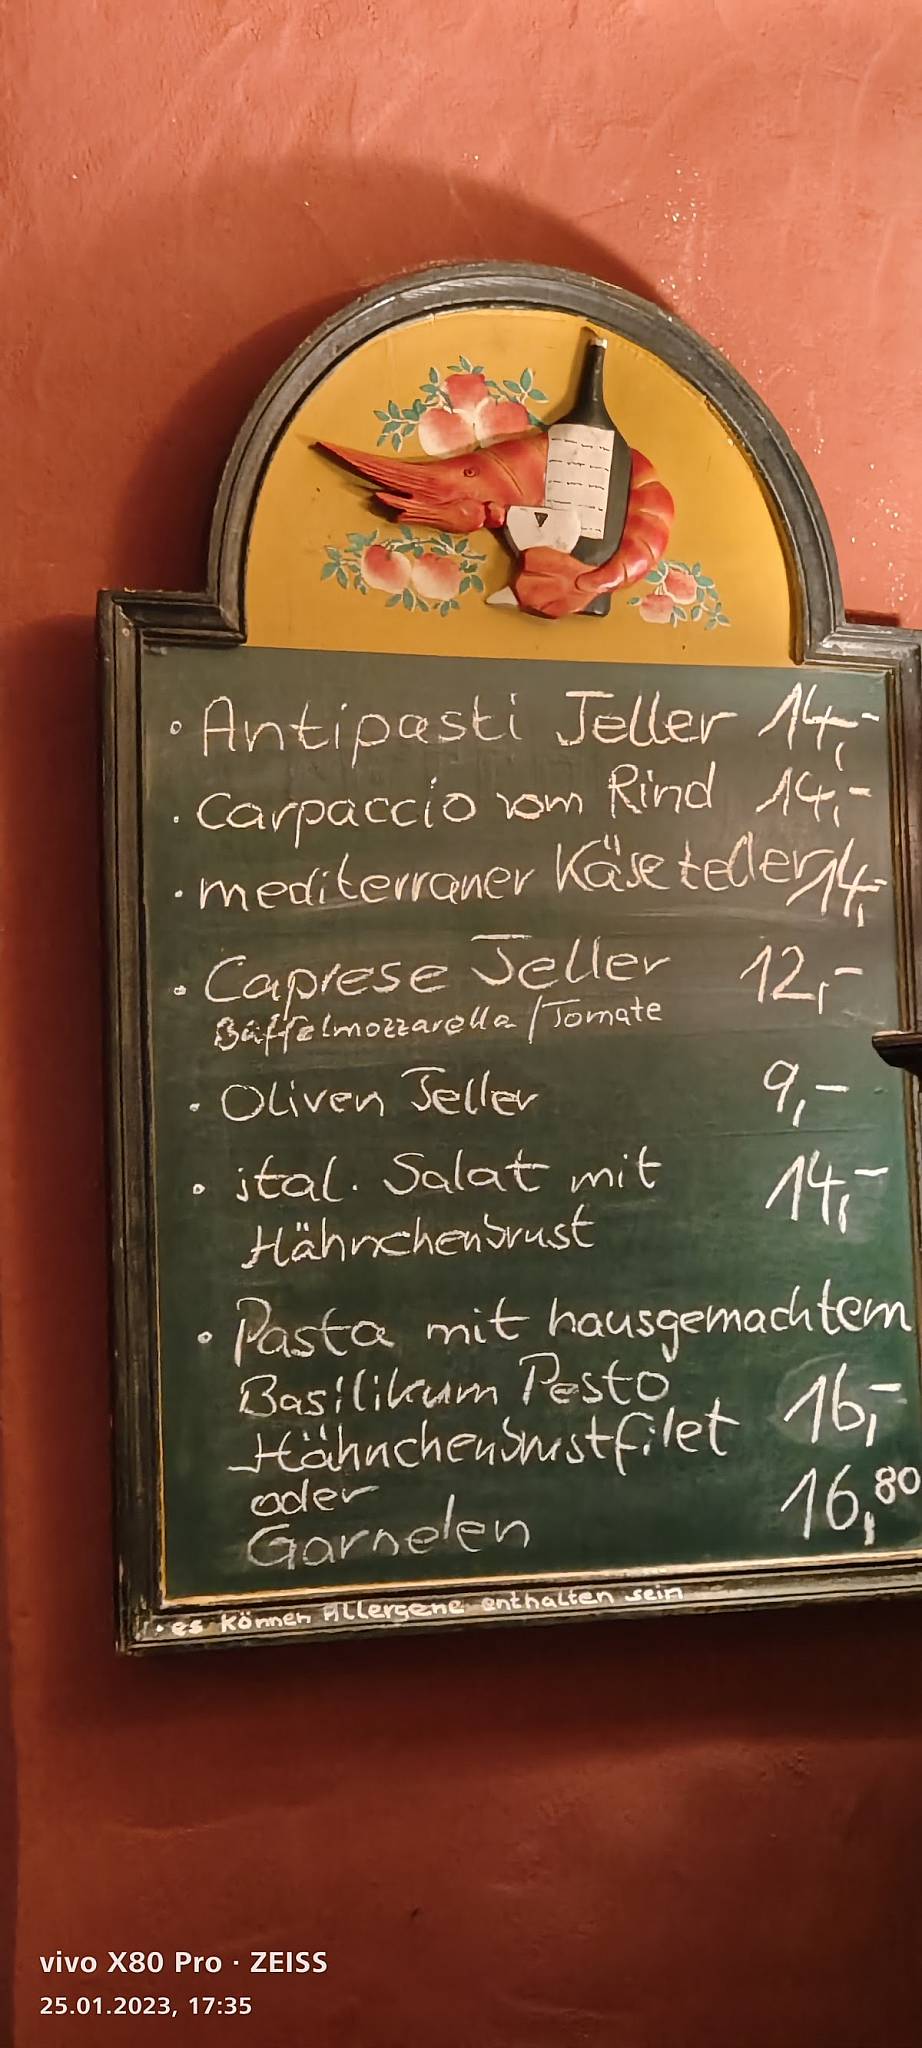 • Antipasti Teller 14,-
• Carpaccio vom Rind 14,-
• mediterraner Käseteller 14,-
• Caprese Teller 12,-
Büffelmozzarella / Tomate
• Oliven Teller 9,-
• ital. Salat mit 14,-
Hähnchenbrust
• Pasta mit hausgemachtem
Basilikum Pesto 16,-
Hähnchenbrustfilet
oder 16,80
Garnelen
• es können Allergene enthalten sein
vivo X80 Pro · ZEISS
25.01.2023, 17:35